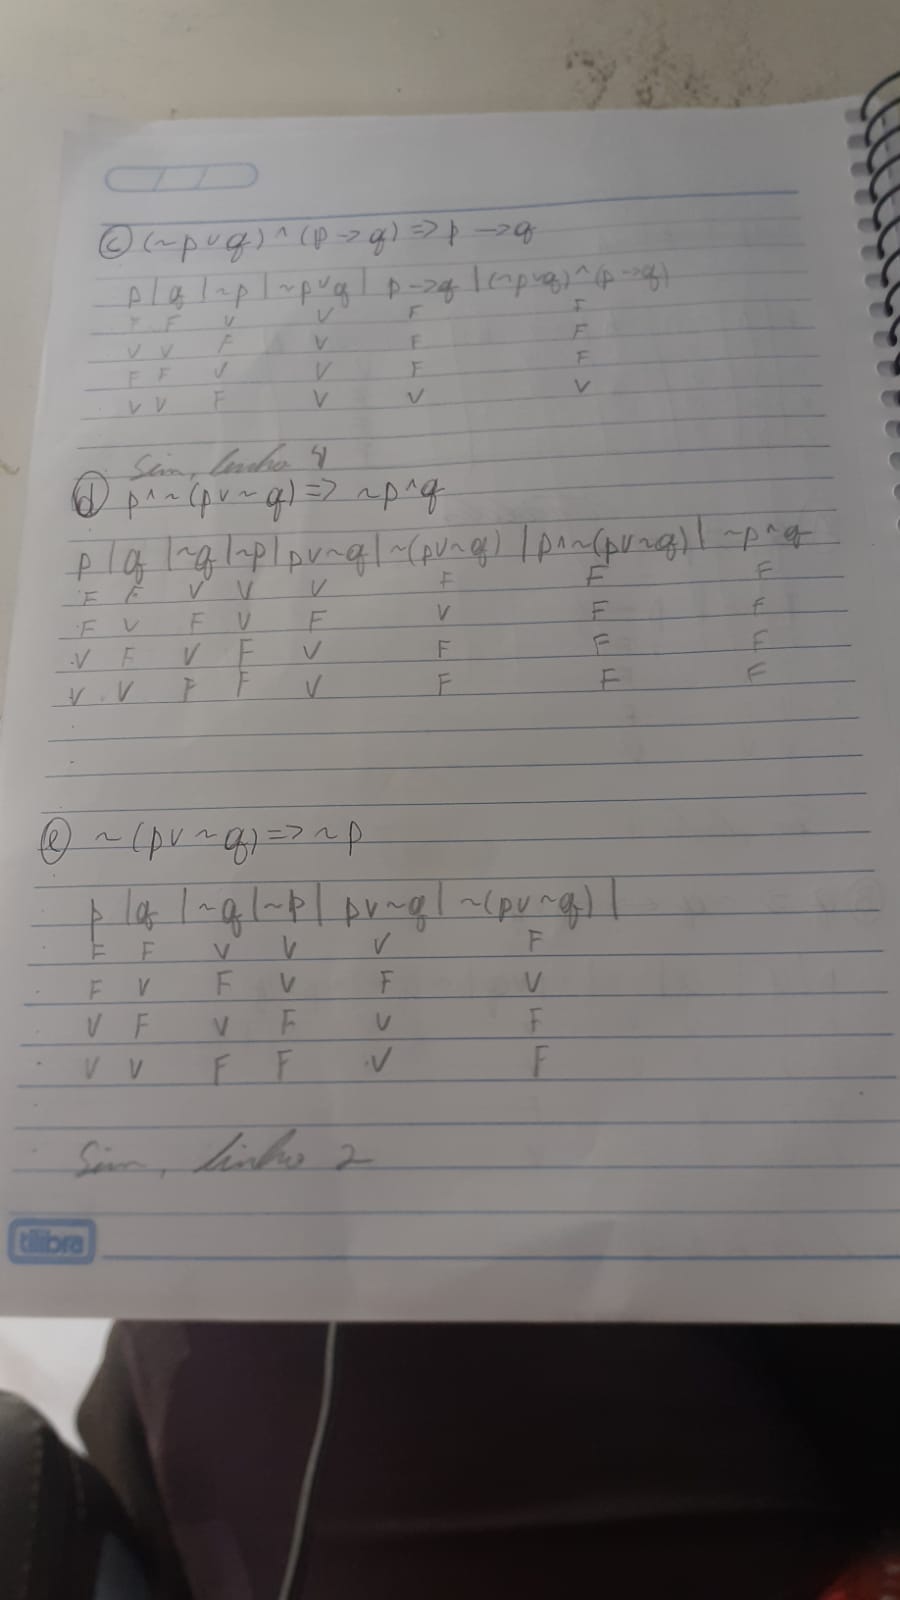 c (~p v q) ^ (p -> q) => p -> q
p | q | ~p | ~p v q | p -> q | (~p v q) ^ (p -> q)
F F V V F F
V V F V F F
F F V V F F
V V F V V V
Sim, linha 4
d p ^ ~(p v ~q) => ~p ^ q
p | q | ~q | ~p | p v ~q | ~(p v ~q) | p ^ ~(p v ~q) | ~p ^ q
F F V V V F F F
F V F V F V F F
V F V F V F F F
V V F F V F F F
e ~(p v ~q) => ~p
p | q | ~q | ~p | p v ~q | ~(p v ~q) |
F F V V V F
F V F V F V
V F V F V F
V V F F V F
Sim, linha 2
tilibra